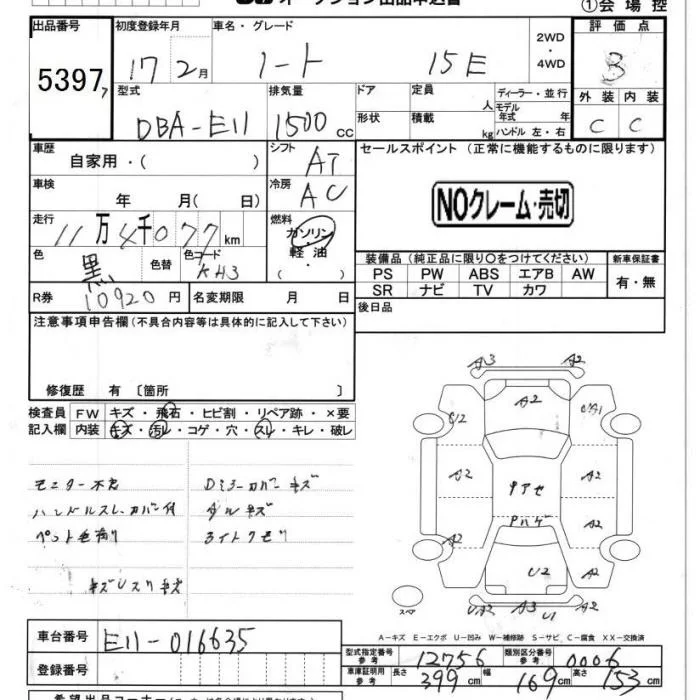 オークション出品申込書
①会場控
出品番号
5397 7
初度登録年月
17 2月
車名・グレード
ノート 15E
2WD
・
4WD
評価点
3
外装 内装
C C
型式
DBA-E11
排気量
1500 cc
ドア
定員
人
形状
積載
kg
ディーラー・並行
モデル年式 年
ハンドル 左・右
車歴
自家用・( )
シフト
AT
セールスポイント (正常に機能するものに限ります)
NOクレーム・売切
車検
年 月( 日)
冷房
AC
走行
11万4千077km
燃料
ガソリン
軽油
色
黒
色替
色コード
KH3
装備品 (純正品に限り〇をつけてください)
新車保証書
PS PW ABS エアB AW
SR ナビ TV カワ
有・無
R券
10920円
名変期限 月 日
後日品
注意事項申告欄 (不具合内容等は具体的に記入して下さい)
修復歴 有 〔箇所 〕
検査員
記入欄
FW キズ・飛石・ヒビ割・リペア跡・×要
内装 キズ・汚レ・コゲ・穴・スレ・キレ・破レ
ハンドルスレ・カバー付
キズ
A3 A2
A2
U2
A2 A2
A2
A2 A2
U2
A3
U1
A2
スペア
A-キズ E-エクボ U-凹み W-補修跡 S-サビ C-腐食 XX-交換済
車台番号
E11-016635
登録番号
型式指定番号
参考
12756
類別区分番号
参考
0006
車庫証明用
参考
長さ 399cm
幅 169cm
高さ 153cm